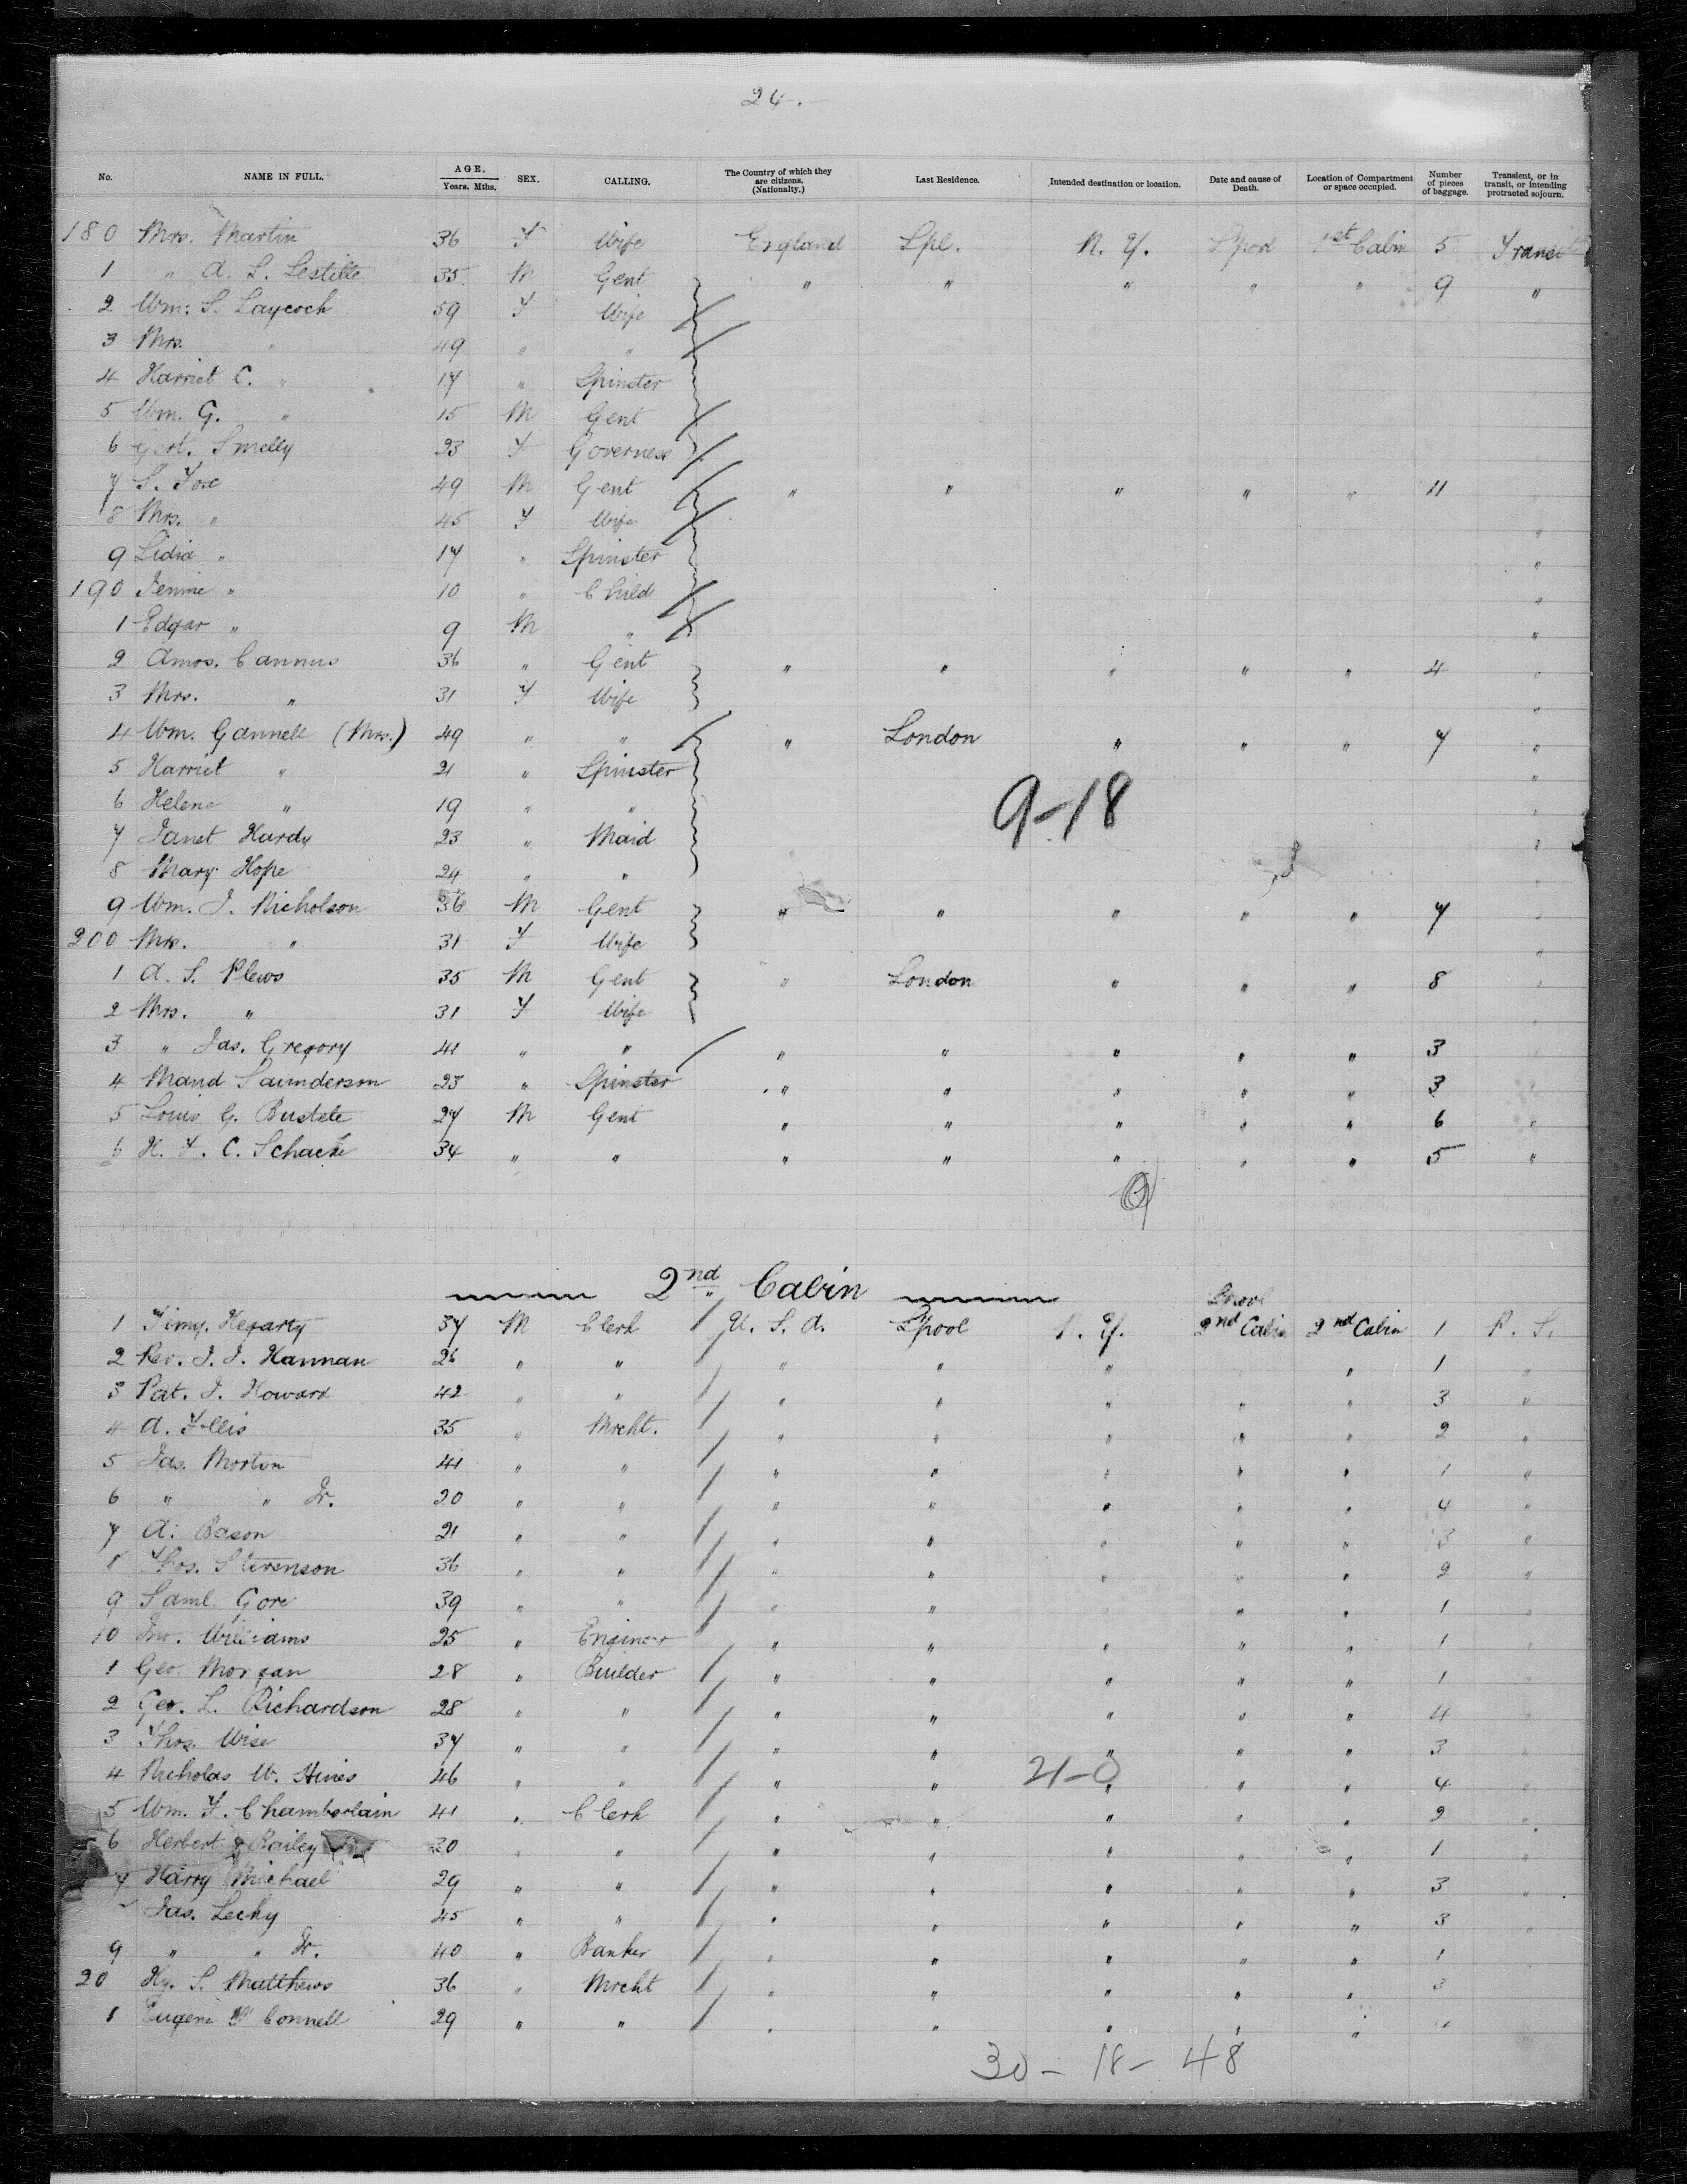 24.
No. NAME IN FULL. AGE. Years. Mths. SEX. CALLING. The Country of which they are citizens. (Nationality.) Last Residence. Intended destination or location. Date and cause of Death. Location of Compartment or space occupied. Number of pieces of baggage. Transient, or in transit, or intending protracted sojourn.
180 Mrs. Martin 36 F Wife England Lpl. N. Y. Lpool 1st Cabin 5 Transit
1 " A. L. Lestille 35 M Gent " " " " " 9 "
2 Wm: S. Laycock 59 F Wife
3 Mrs. " 49 " "
4 Harriet C. " 17 " Spinster
5 Wm. G. " 15 M Gent
6 Gert. Smelly 23 F Governess
7 S. Fox 49 M Gent " " " " " 11
8 Mrs. " 45 F Wife "
9 Lidia " 17 " Spinster "
190 Jennie " 10 " Child "
1 Edgar " 9 M " "
2 Amos. Cannus 36 " Gent " " " " " 4 "
3 Mrs. " 31 F Wife "
4 Wm. Gannell (Mrs.) 49 " " " London " " " 7 "
5 Harriet " 21 " Spinster "
6 Helene " 19 " " "
9-18
7 Janet Hardy 23 " Maid "
8 Mary Hope 24 " " "
9 Wm. J. Nicholson 36 M Gent " " " " " 7 "
200 Mrs. " 31 F Wife "
1 A. S. Plews 35 M Gent " London " " " 8 "
2 Mrs. " 31 F Wife
3 " Jas. Gregory 41 " " " " " " " 3
4 Maud Saunderson 23 " Spinster " " " " " 3
5 Louis G. Bustete 27 M Gent " " " " " 6 "
6 H. F. C. Schacte 34 " " " " " " " 5 "
2nd Cabin
Lpool
1 Timy. Hegarty 37 M Clerk U. S. A. Lpool N. Y. 2nd Cabin 2nd Cabin 1 P. S.
2 Rev. J. J. Hannan 26 " " " " " " 1 "
3 Pat. J. Howard 42 " " " " " " " 3 "
4 A. Follis 35 " Mrcht. " " " " " 2 "
5 Jas. Morton 41 " " " " " " " 1 "
6 " " Jr. 20 " " " " " " " 4 "
7 A: Bason 21 " " " " " " " 3 "
8 Thos. Stevenson 36 " " " " " " " 2 "
9 Saml. Gore 39 " " " " " " 1 "
10 Jno. Williams 25 " Engineer " " " " " 1 "
1 Geo. Morgan 28 " Builder " " " " " 1 "
2 Geo. L. Richardson 28 " " " " " " " 4 "
3 Thos. Wise 37 " " " " " " " 3 "
4 Nicholas W. Hines 46 " " " " " " " 4 "
21-0
5 Wm. F. Chamberlain 41 " Clerk " " " " " 2 "
6 Herbert Bailey 30 " " " " " " " 1 "
7 Harry Michael 29 " " " " " " " 3 "
Jas. Lecky 45 " " " " " " " 3 "
9 " " Jr. 40 " Banker " " " " " 1
20 Hy. S. Matthews 36 " Mrcht " " " " " 3
1 Eugene McConnell 29 " " " " " " "
30 - 18 - 48